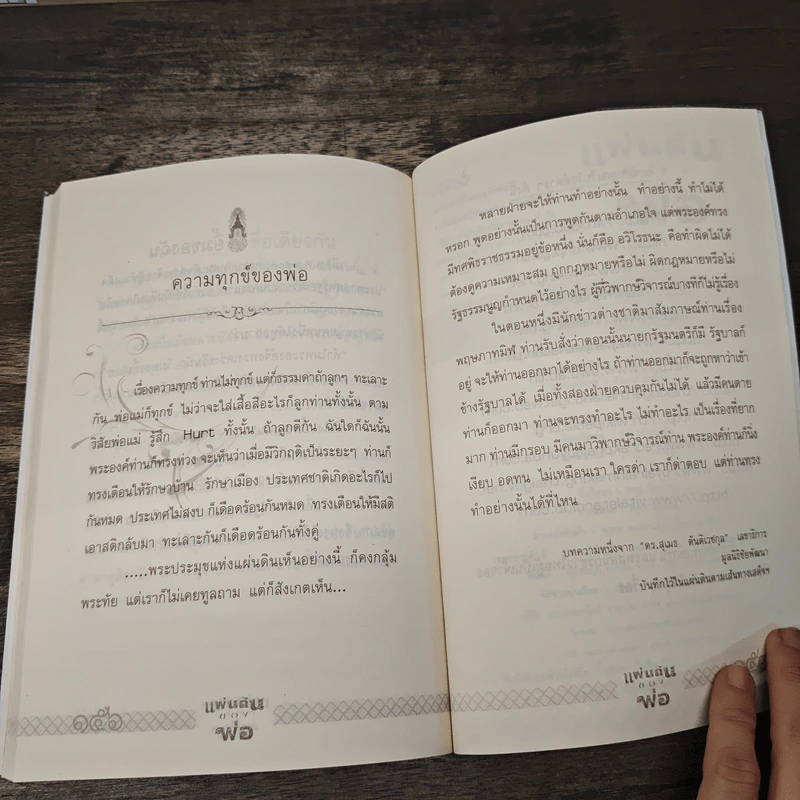 ความทุกข์ของพ่อ
เรื่องความทุกข์ ท่านไม่ทุกข์ แต่ก็ธรรมดาถ้าลูกๆ ทะเลาะ
กัน พ่อแม่ก็ทุกข์ ไม่ว่าจะใส่เสื้อสีอะไรก็ลูกท่านทั้งนั้น ตาม
วิสัยพ่อแม่ รู้สึก Hurt ทั้งนั้น ถ้าลูกตีกัน ฉันใดก็ฉันนั้น
พระองค์ท่านก็ทรงห่วง จะเห็นว่าเมื่อมีวิกฤติเป็นระยะๆ ท่านก็
ทรงเตือนให้รักษาบ้าน รักษาเมือง ประเทศชาติเกิดอะไรก็ไป
กันหมด ประเทศไม่สงบ ก็เดือดร้อนกันหมด ทรงเตือนให้มีสติ
เอาสติกลับมา ทะเลาะกันก็เดือดร้อนกันทั้งคู่
.....พระประมุขแห่งแผ่นดินเห็นอย่างนี้ ก็คงกลุ้ม
พระทัย แต่เราก็ไม่เคยทูลถาม แต่ก็สังเกตเห็น...
๑๕๖
แผ่นดิน
ของ
พ่อ
หลายฝ่ายจะให้ท่านทำอย่างนั้น ทำอย่างนี้ ทำไม่ได้
หรอก พูดอย่างนั้นเป็นการพูดกันตามอำเภอใจ แต่พระองค์ทรง
มีทศพิธราชธรรมอยู่ข้อหนึ่ง นั่นก็คือ อวิโรธนะ คือทำผิดไม่ได้
ต้องดูความเหมาะสม ถูกกฎหมายหรือไม่ ผิดกฎหมายหรือไม่
รัฐธรรมนูญกำหนดไว้อย่างไร ผู้ที่วิพากษ์วิจารณ์บางทีก็ไม่รู้เรื่อง
ในตอนหนึ่งมีนักข่าวต่างชาติมาสัมภาษณ์ท่านเรื่อง
พฤษภาทมิฬ ท่านรับสั่งว่าตอนนั้นนายกรัฐมนตรีก็มี รัฐบาลก็
อยู่ จะให้ท่านออกมาได้อย่างไร ถ้าท่านออกมาก็จะถูกหาว่าเข้า
ข้างรัฐบาลได้ เมื่อทั้งสองฝ่ายควบคุมกันไม่ได้ แล้วมีคนตาย
ท่านก็ออกมา ท่านจะทรงทำอะไร ไม่ทำอะไร เป็นเรื่องที่ยาก
มาก ท่านมีกรอบ มีคนมาวิพากษ์วิจารณ์ท่าน พระองค์ท่านก็นิ่ง
เงียบ อดทน ไม่เหมือนเรา ใครด่า เราก็ด่าตอบ แต่ท่านทรง
ทำอย่างนั้นได้ที่ไหน
บทความหนึ่งจาก "ดร.สุเมธ ตันติเวชกุล" เลขาธิการ
มูลนิธิชัยพัฒนา
บันทึกไว้ในแผ่นดินตามเส้นทางเสด็จฯ
แผ่นดิน
ของ
พ่อ